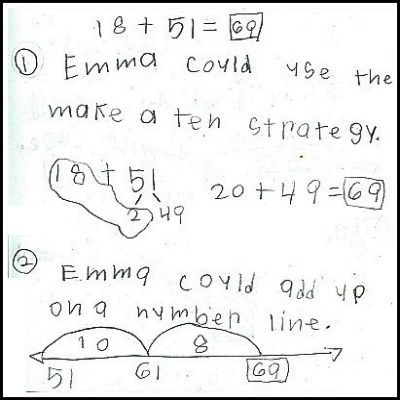 18 + 51 = 69
① Emma could use the
make a ten strategy.
18 + 51
2 49
20 + 49 = 69
② Emma could add up
on a number line.
10 8
51 61 69